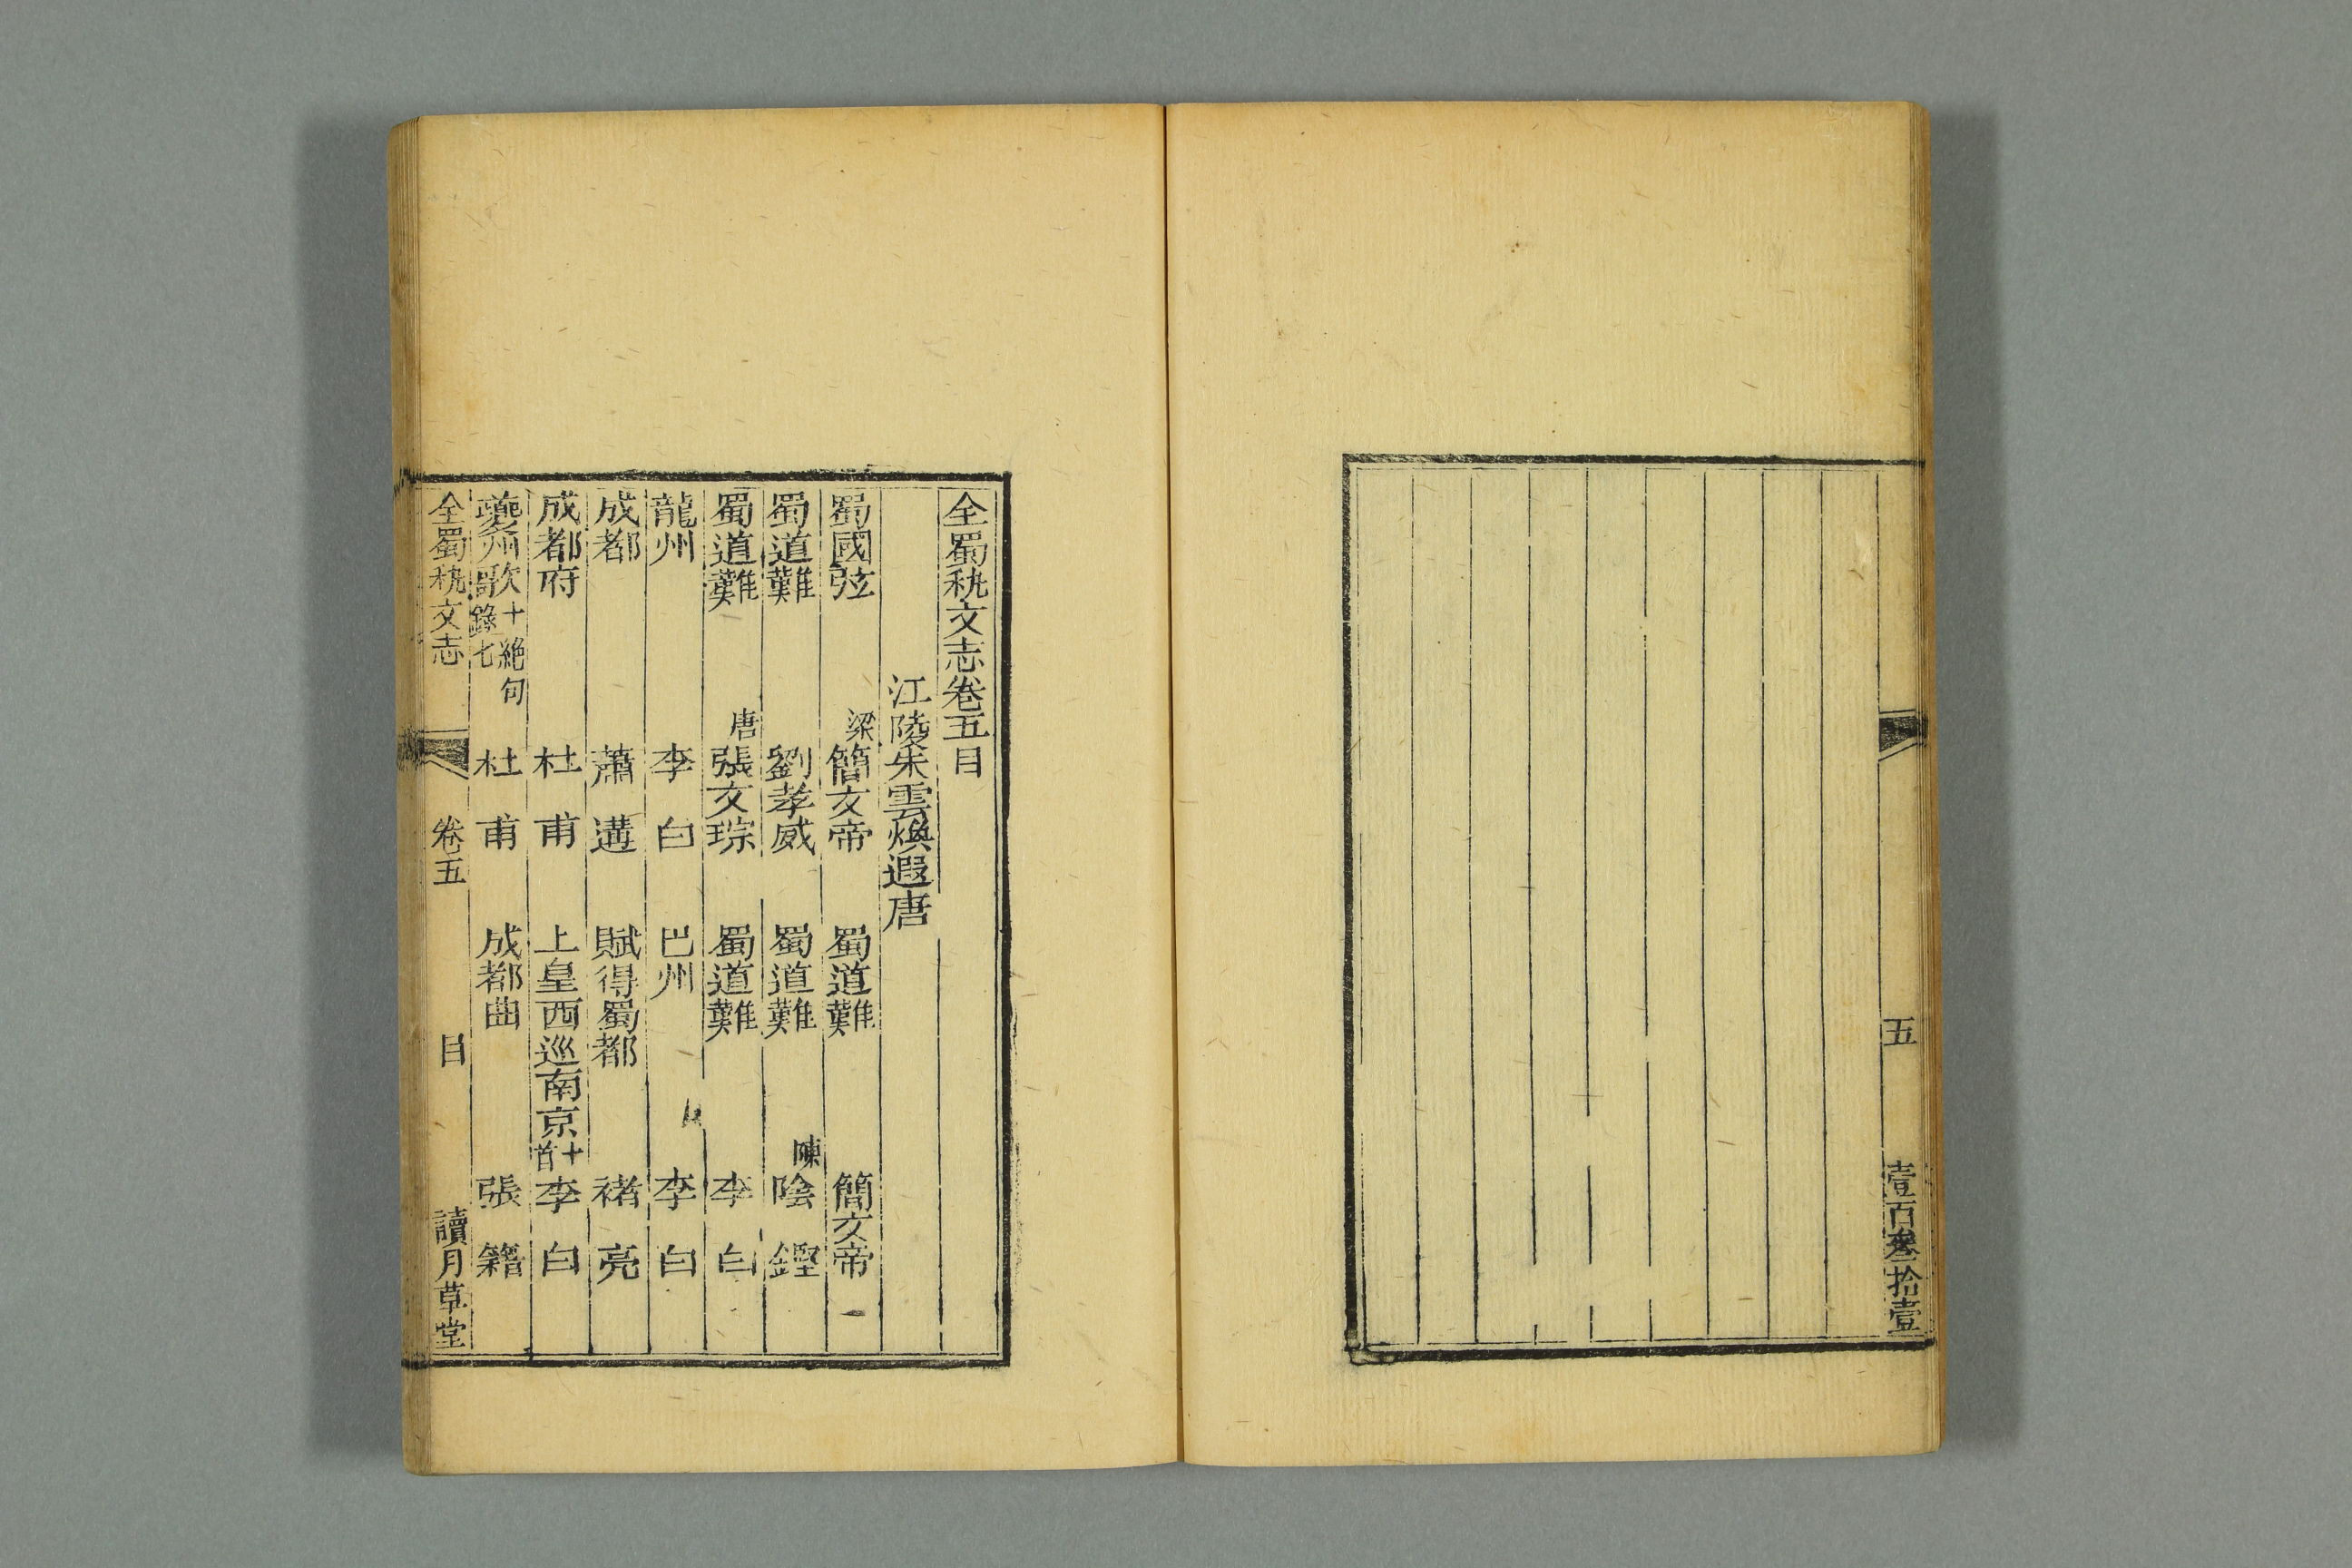 五
壹百叄拾壹
全蜀秇文志卷五目
江陵朱雲煥遐唐
蜀國弦 梁簡文帝 蜀道難 簡文帝
蜀道難 劉孝威 蜀道難 陳陰鏗
蜀道難 唐張文琮 蜀道難 李白
龍州 李白 巴州 李白
成都 蕭遘 賦得蜀都 褚亮
成都府 杜甫 上皇西巡南京十首 李白
夔州歌十絕句錄七 杜甫 成都曲 張籍
全蜀秇文志 卷五 目 讀月草堂